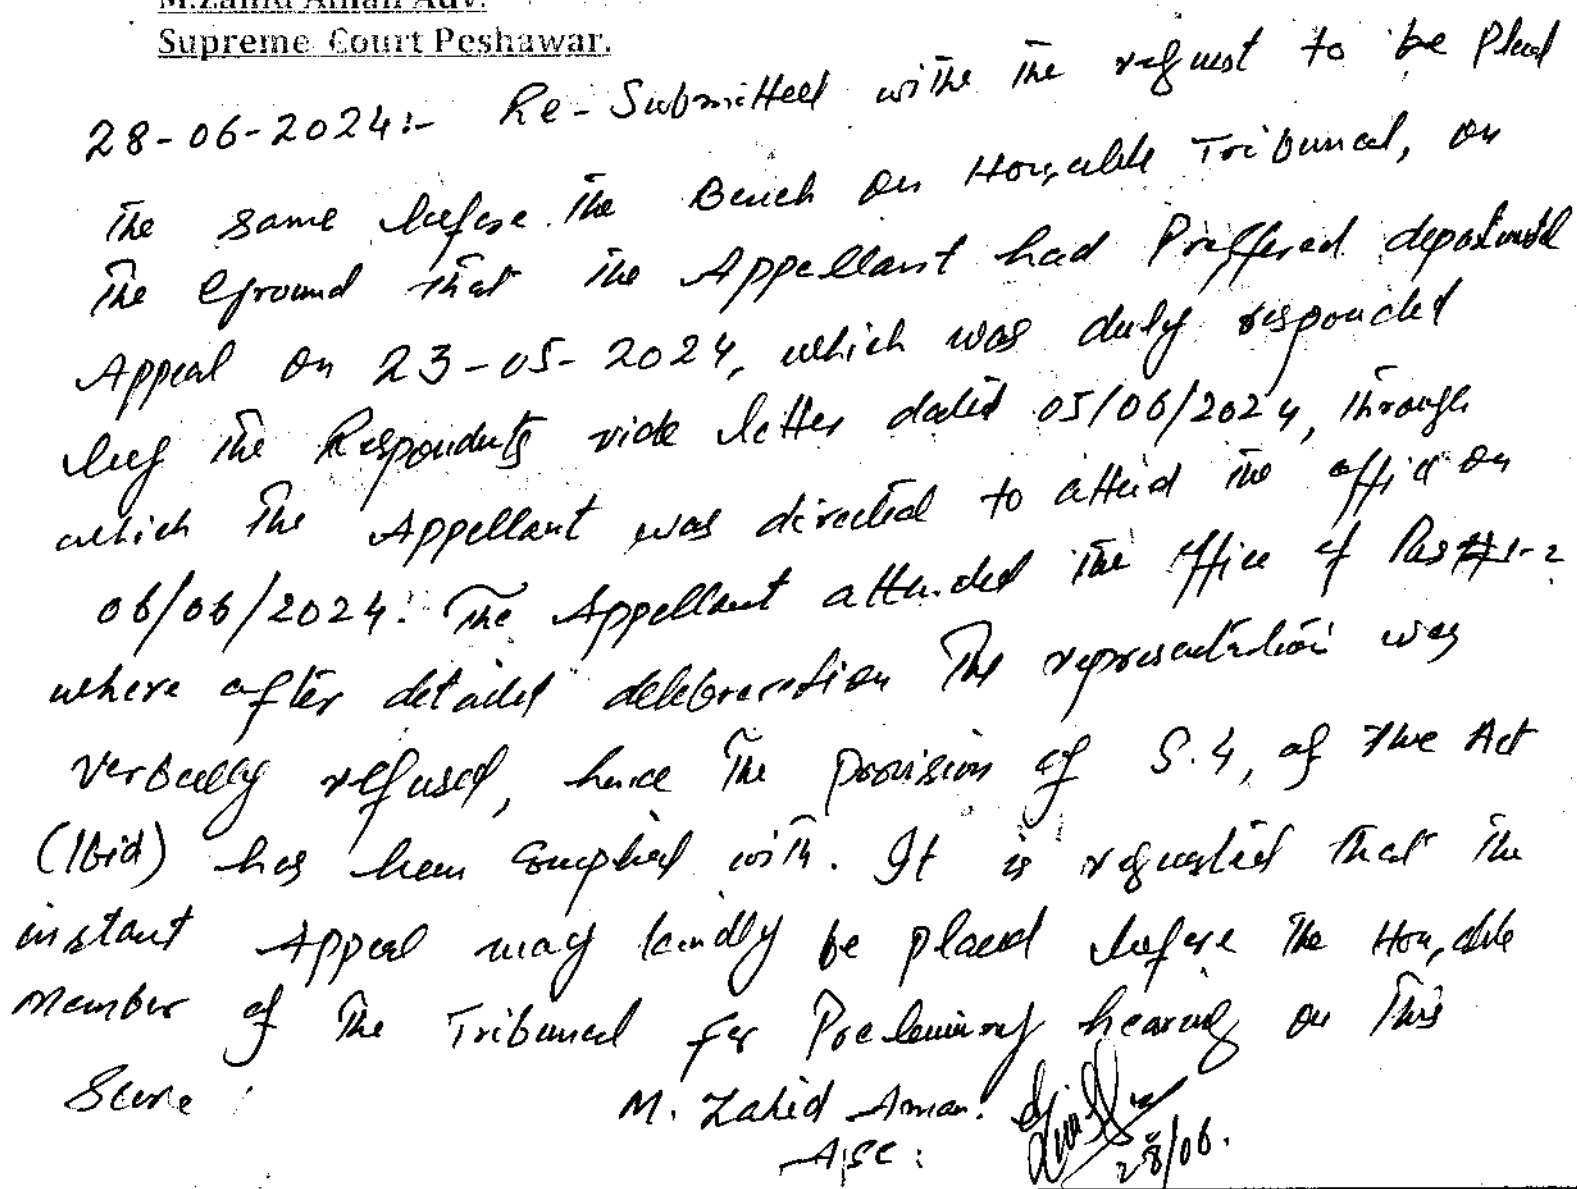 M.Zahid Aman Adv.
Supreme Court Peshawar.
28-06-2024:- Re-Submitted withe the request to be placed
the same before the Bench on Hon,able Tribunal, on
the Ground that the Appellant had Preffered departmental
Appeal on 23-05-2024, which was duly responded
by the Respondents vide letter dated 05/06/2024, through
which the Appellant was directed to attend the office on
06/06/2024. The Appellant attended the office of Res#1-2
where after detailed delebreration the representation was
verbally refused, hence the provision of S.4, of the Act
(Ibid) has been complied with. It is requested that the
instant Appeal may kindly be placed before the Hon,able
Member of the Tribunal for Preleminary hearing on this
Score
M. Zahid Aman.
ASC:
28/06.